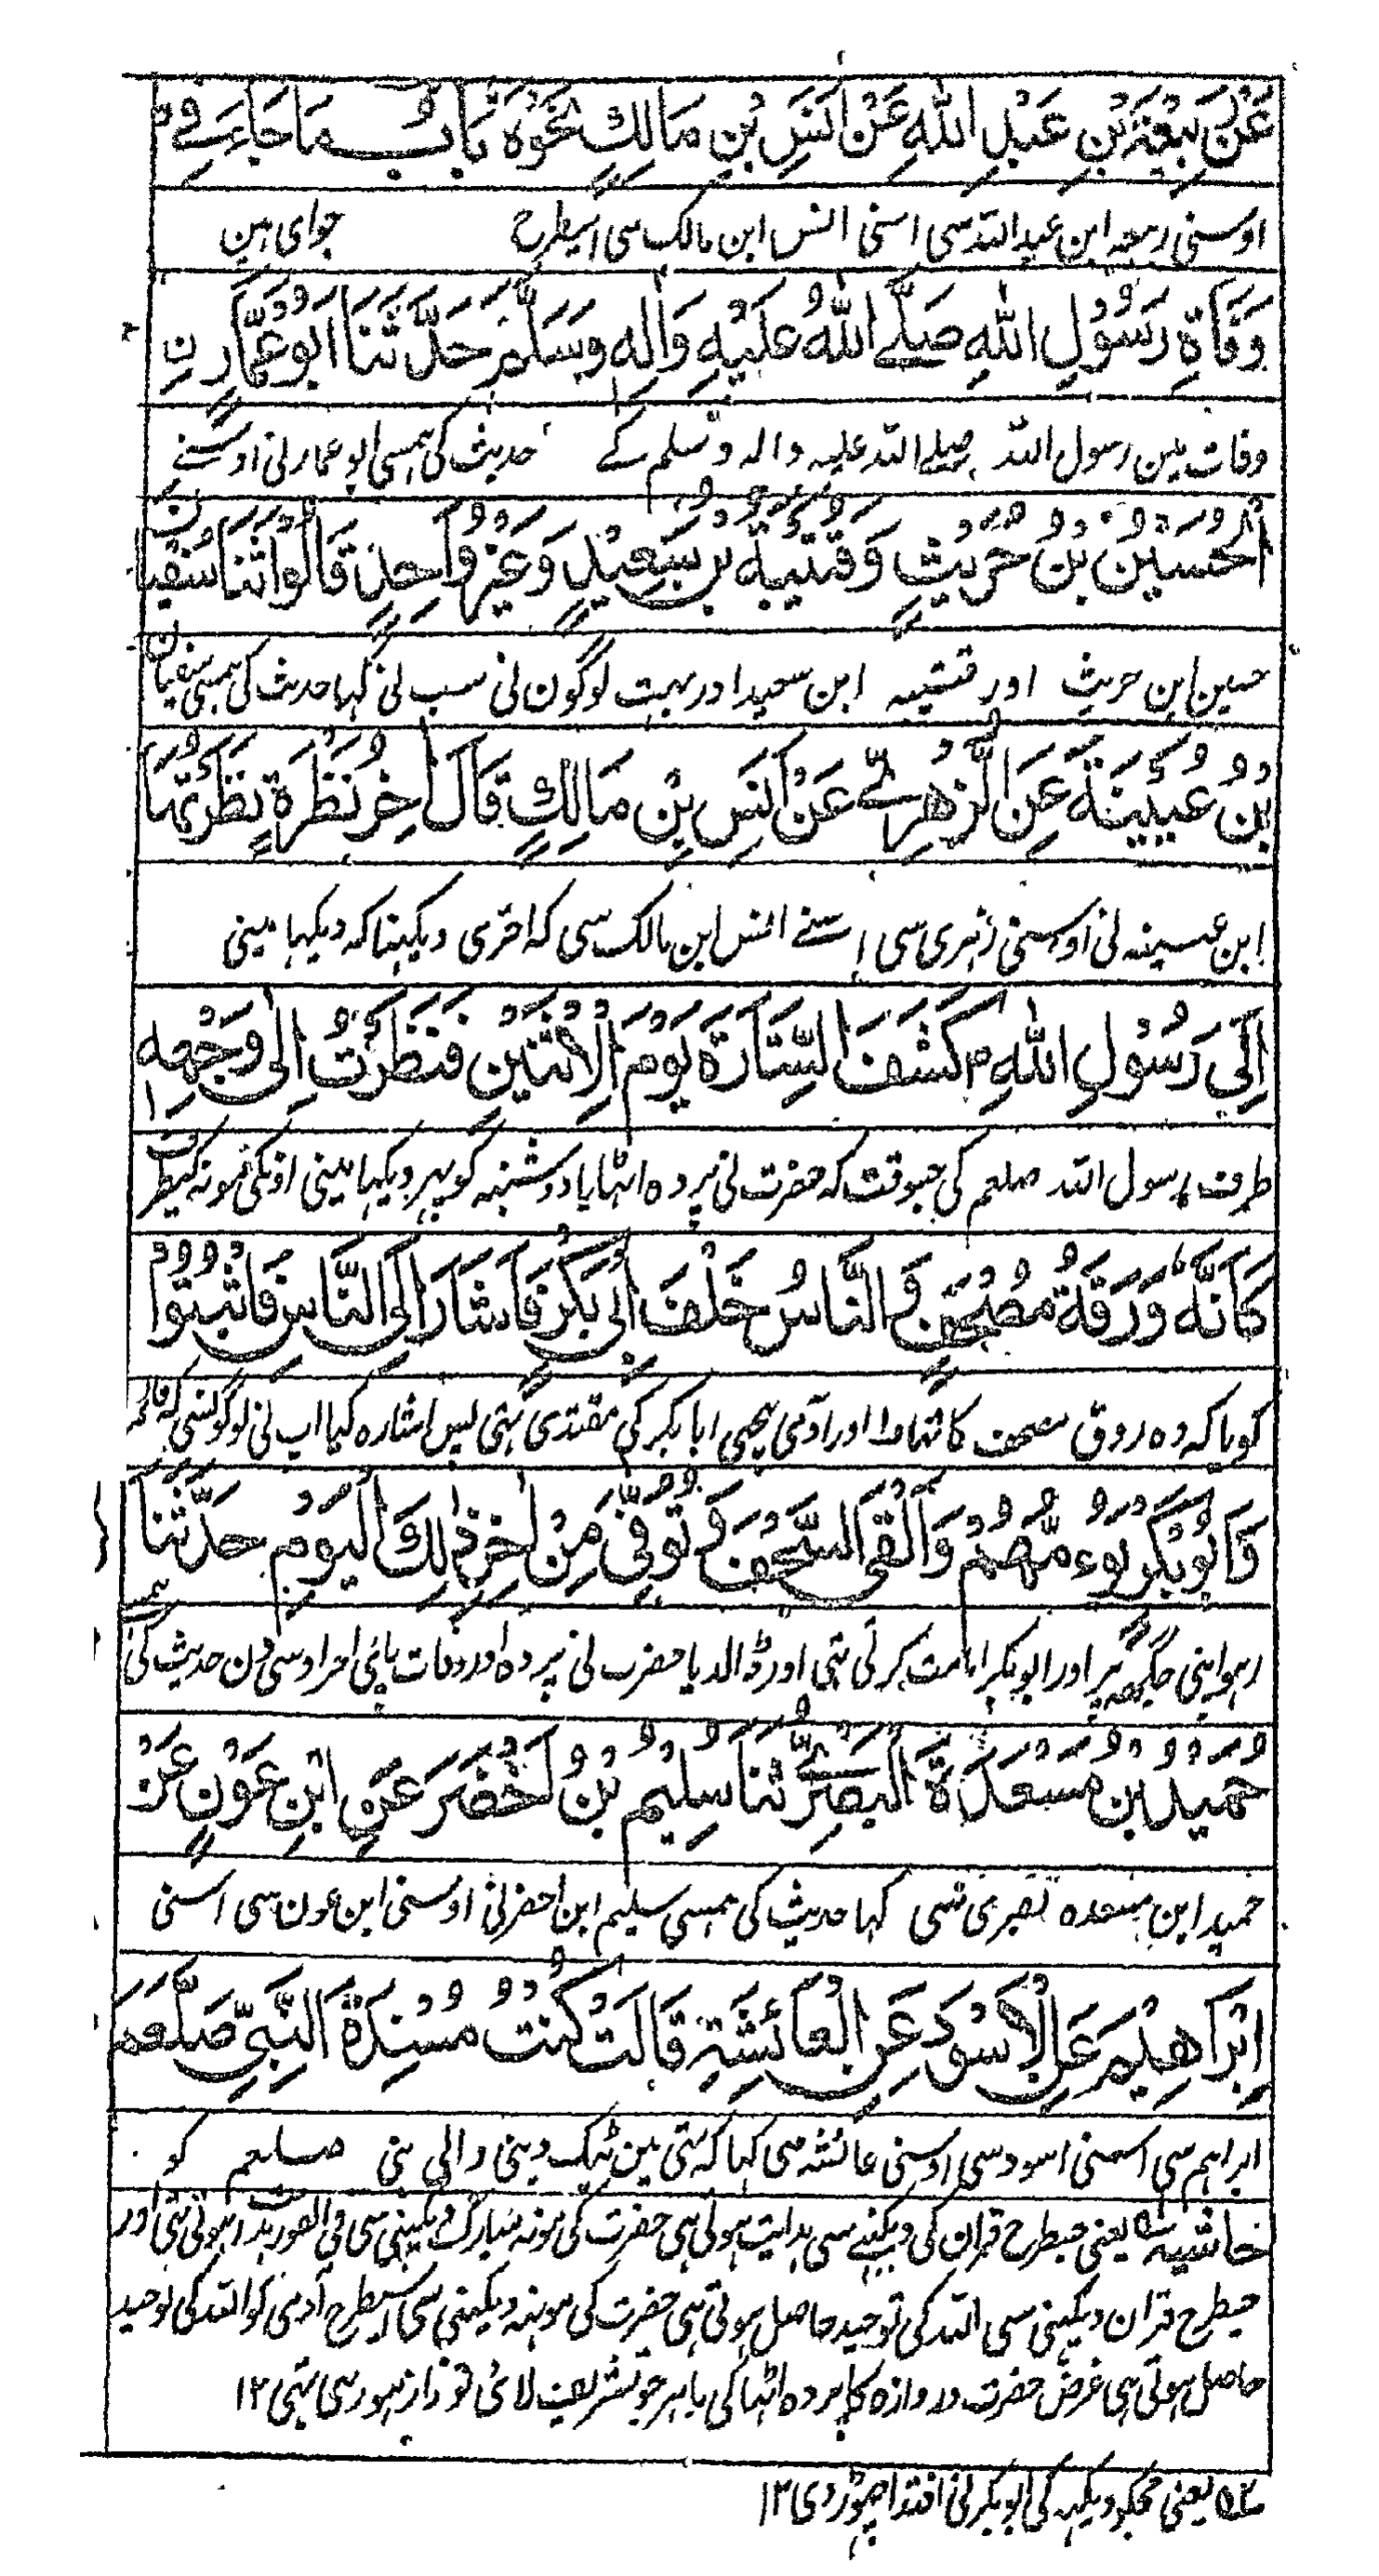 عَنْ رَبِيْعَةَ بْنِ عَبْدِ اللّٰهِ عَنْ اَنَسِ بْنِ مَالِكٍ نَحْوُهُ بَابُ مَا جَاءَ فِي
اوسنی ربیعہ ابن عبد اللہ سی اسنی انس ابن مالک سی اسیطرح جوای ہین
وَفَاةِ رَسُوْلِ اللّٰهِ صَلَّے اللّٰهُ عَلَيْهِ وَاٰلِهٖ وَسَلَّمَ حَدَّثَنَا اَبُوْ عَمَّارِ نِ
وفات مین رسول اللہ صلے اللہ علیہ والہ وسلم کے حدیث کی ہمسی ابو عمار نی اوسنے
الْحُسَيْنُ بْنُ حُرَيْثٍ وَقُتَيْبَةُ بْنُ سَعِيْدٍ وَغَيْرُ وَاحِدٍ قَالُوْا ثَنَا سُفْيَانُ
حسین ابن حریث اور قتیبہ ابن سعید اور بہت لوگون نی سب نی کہا حدیث کی ہمسی سفیان
بْنُ عُيَيْنَةَ عَنِ الزُّهْرِيِّ عَنْ اَنَسِ بْنِ مَالِكٍ قَالَ اٰخِرُ نَظْرَةٍ نَظَرْتُهَا
ابن عیینہ نی اوسنی زہری سی اسنے انس ابن مالک سی کہ اخری دیکہنا کہ دیکہا مینی
اِلٰى رَسُوْلِ اللّٰهِ م كَشَفَ السِّتَارَةَ يَوْمَ الْاِثْنَيْنِ فَنَظَرْتُ اِلٰى وَجْهِهٖ
طرف رسول اللہ صلعم کی جبوقت کہ حضرت نی پردہ اٹہایا دوشنبہ کو پہر دیکہا مینی اونکی مونہ کیطرف
كَاَنَّهٗ وَرَقَةُ مُصْحَفٍ وَالنَّاسُ خَلْفَ اَبِيْ بَكْرٍ فَاَشَارَ اِلَى النَّاسِ فَاثْبُتُوْا
گویا کہ وہ ورق مصحف کا تہا اور آدمی پیچہی ابا بکر کی مقتدی تہی پس اشارہ کیا اپ نی لوگونسی کہ قائم
وَاَبُوْبَكْرٍ يَؤُمُّهُمْ وَاَلْقَى السَّجْفَ وَتُوُفِّيَ مِنْ اٰخِرِ ذٰلِكَ الْيَوْمِ حَدَّثَنَا
رہو اپنی جگہہ پر اور ابو بکر امامت کرتی تہی اور ڈالدیا حضرت نی پردہ اور وفات پائی اخر اوسی دن حدیث کی ہمسی
حُمَيْدُ بْنُ مَسْعَدَةَ الْبَصَرِيُّ ثَنَا سُلَيْمُ بْنُ اَخْضَرَ عَنِ ابْنِ عَوْنٍ عَنْ
حمید ابن مسعدہ بصری سی کہا حدیث کی ہمسی سلیم ابن اخضر نی اوسنی ابن عون سی اسنی
اِبْرَاهِيْمَ عَنِ الْاَسْوَدِ عَنِ الْعَائِشَةِ قَالَتْ كُنْتُ مُسْنِدَةً النَّبِيَّ صَلْعَمْ
ابراہم سی اسمنی اسود سی اوسنی عائشہ سی کہا کہ تہی مین ٹیک دینی والی نبی صلعم کو
حاشیہ ۱۵ یعنی جیطرح قران کی دیکہنے سی ہدایت ہوتی ہی حضرت کی مونہ مبارک دیکہنی سی فی الفور ہدایت ہوتی تہی اور
جیطرح قران دیکہنی سی اللہ کی توحید حاصل ہوتی ہی حضرت کی مونہہ دیکہنی سی اسیطرح آدمی کو اللہ کی توحید
حاصل ہوتی ہی غرض حضرت دروازہ کا پردہ اٹہا کی باہر جو تشریف لائی تو نماز ہو رہی تہی ۱۲
۲۵ یعنی مجکو دیکہہ کی ابو بکر نی اقتدا چہوڑ دی ۱۲